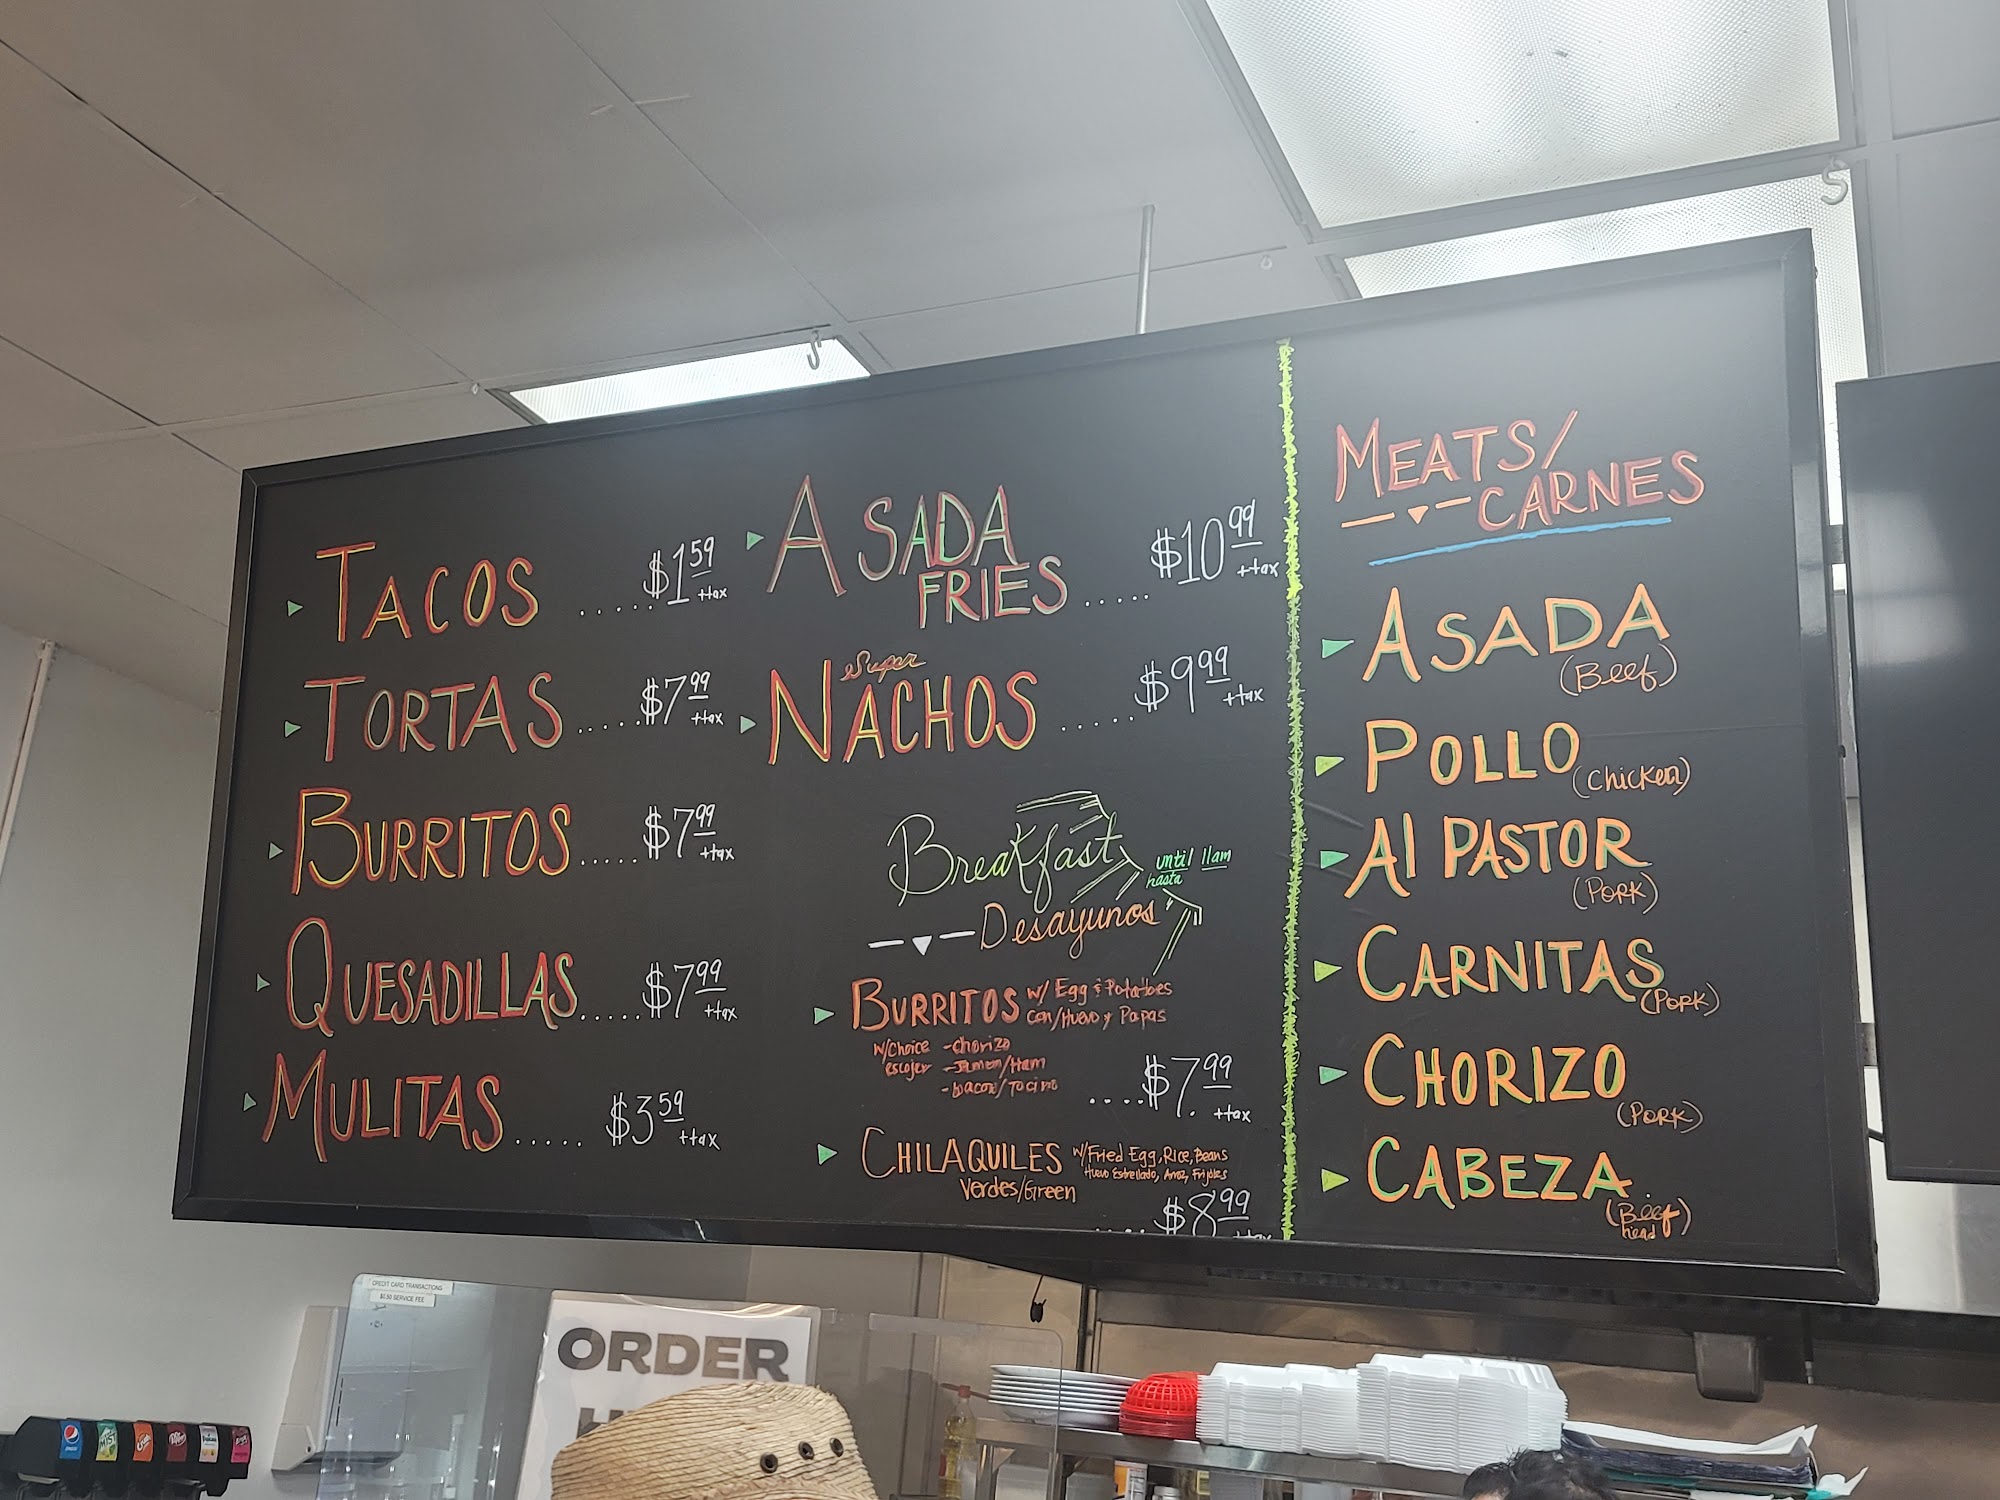 TACOS ..... $1.59 +tax
TORTAS ..... $7.99 +tax
BURRITOS ..... $7.99 +tax
QUESADILLAS ..... $7.99 +tax
MULITAS ..... $3.59 +tax
ASADA
FRIES ..... $10.99 +tax
Super
NACHOS ...... $9.99 +tax
Breakfast
until 11am
hasta
Desayunos
BURRITOS w/ Egg & Potatoes
con/Huevo y Papas
w/choice -chorizo
escojer -Jamon/Ham
-bacon/Tocino
.... $7.99 +tax
CHILAQUILES w/Fried Egg, Rice, Beans
Huevo Estrellado, Arroz, Frijoles
Verdes/Green
.... $8.99 +tax
MEATS/
CARNES
ASADA
(Beef)
POLLO (chicken)
Al PASTOR
(PORK)
CARNITAS
(PORK)
CHORIZO
(PORK)
CABEZA
(Beef
head)
CREDIT CARD TRANSACTIONS
SERVICE FEE
ORDER
pepsi
MIST
Crush
Dr Pepper